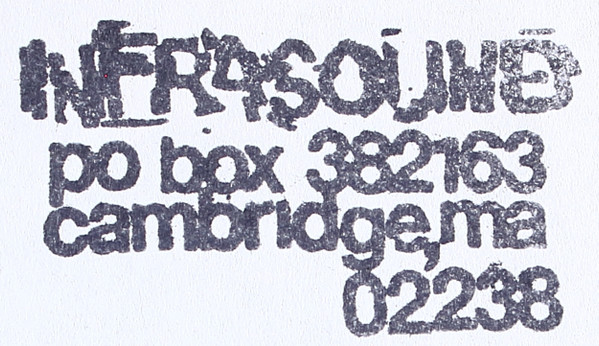 INFRASOUND
po box 382163
cambridge, ma
02238